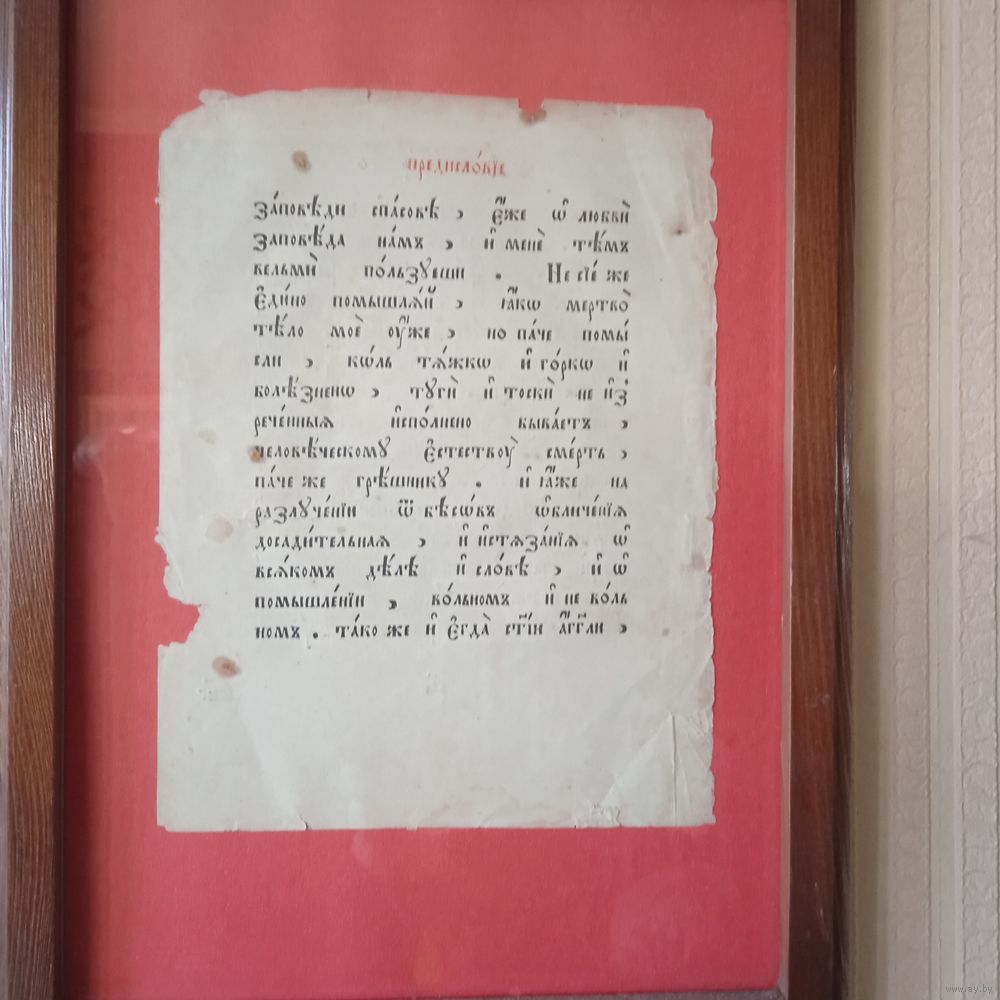 предисло́вїе
За́повѣди спа́совѣ , є҆́же ѡ҆ любвѝ
Заповѣ́да на́мъ , и҆ менѐ тѣ́мъ
вельмѝ по́льзуеши . Не сїе́ же
є҆ди́но помышлѧ́й , ꙗ҆́кѡ мертво̀
тѣ́ло моѐ оу҆́же , но па́че помы́
сли , ко́ль тѧ́жкѡ и҆ го́ркѡ и҆
болѣ́зненѡ , тугѝ и҆ тоскѝ не и҆з̾
рече́нныѧ и҆спо́лнено быва́етъ ,
человѣ́ческому є҆стествоу̀ сме́рть ,
па́че же грѣ́шнику . и҆ ꙗ҆́же на
разлуче́нїи ѿ бѣсѡ́въ ѡ҆бличе́нїѧ
досади́тельнаѧ , и҆ и҆стѧза́нїѧ ѡ҆
всѧ́комъ дѣ́лѣ и҆ сло́вѣ , и҆ ѡ҆
помышле́нїи , во́льномъ и҆ не во́ль
номъ . та́ко же и҆ є҆гда̀ ст҃і́и а҆́гг҃ли ,
www.ay.by